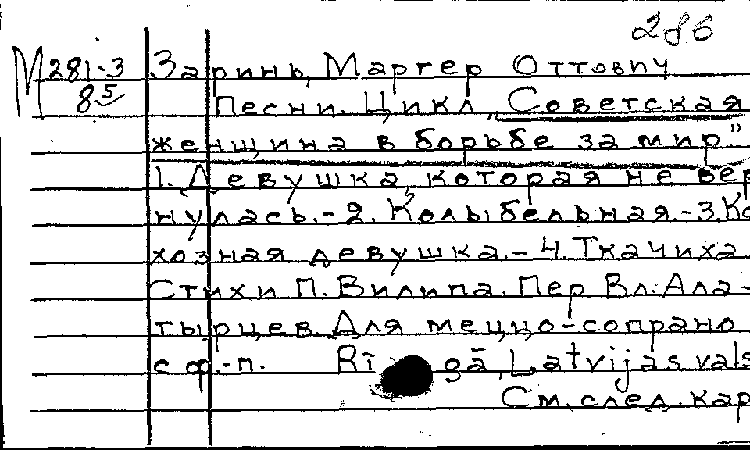 286
М 281-3
85
Заринь, Маргер Оттович
Песни. Цикл „Советская
женщина в борьбе за мир"
1. Девушка, которая не вер-
нулась. - 2. Колыбельная. - 3. Ко
хозная девушка. - 4. Ткачиха.
Стихи П. Вилипа. Пер. Вл. Ала-
тырцев. Для меццо-сопрано
с ф.-п. Rīgā, Latvijas vals
См. след. кар